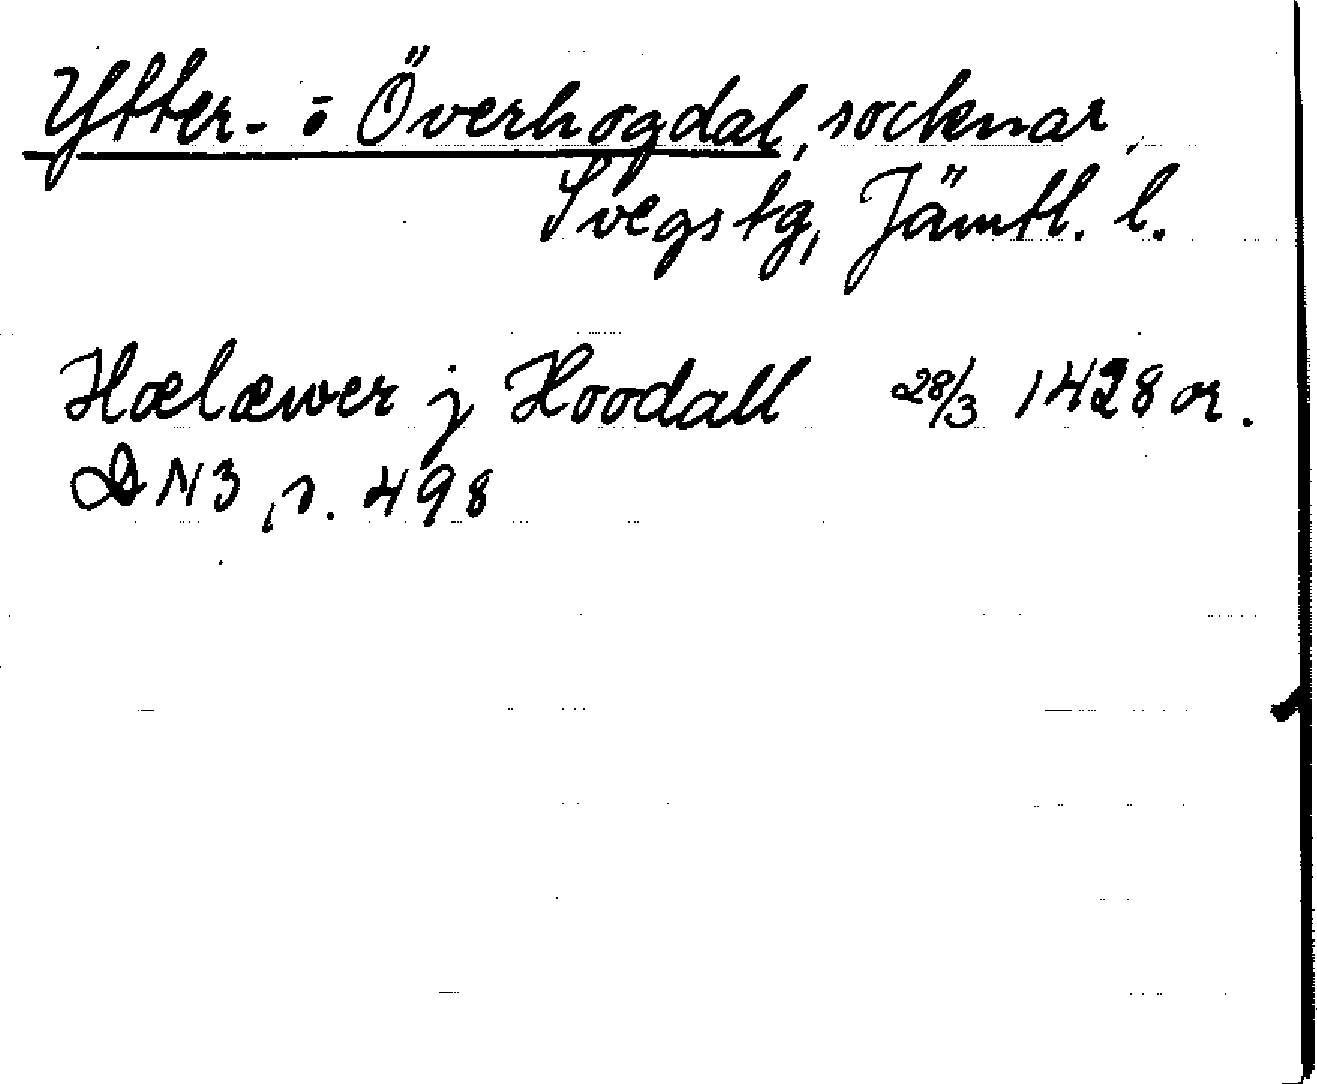 Ytter- o Överhogdal, socknar,
Svegs tg, Jämtl. l.
Hoelæwer j Hoodall 28/3 1428 or.
DN 3, s. 498